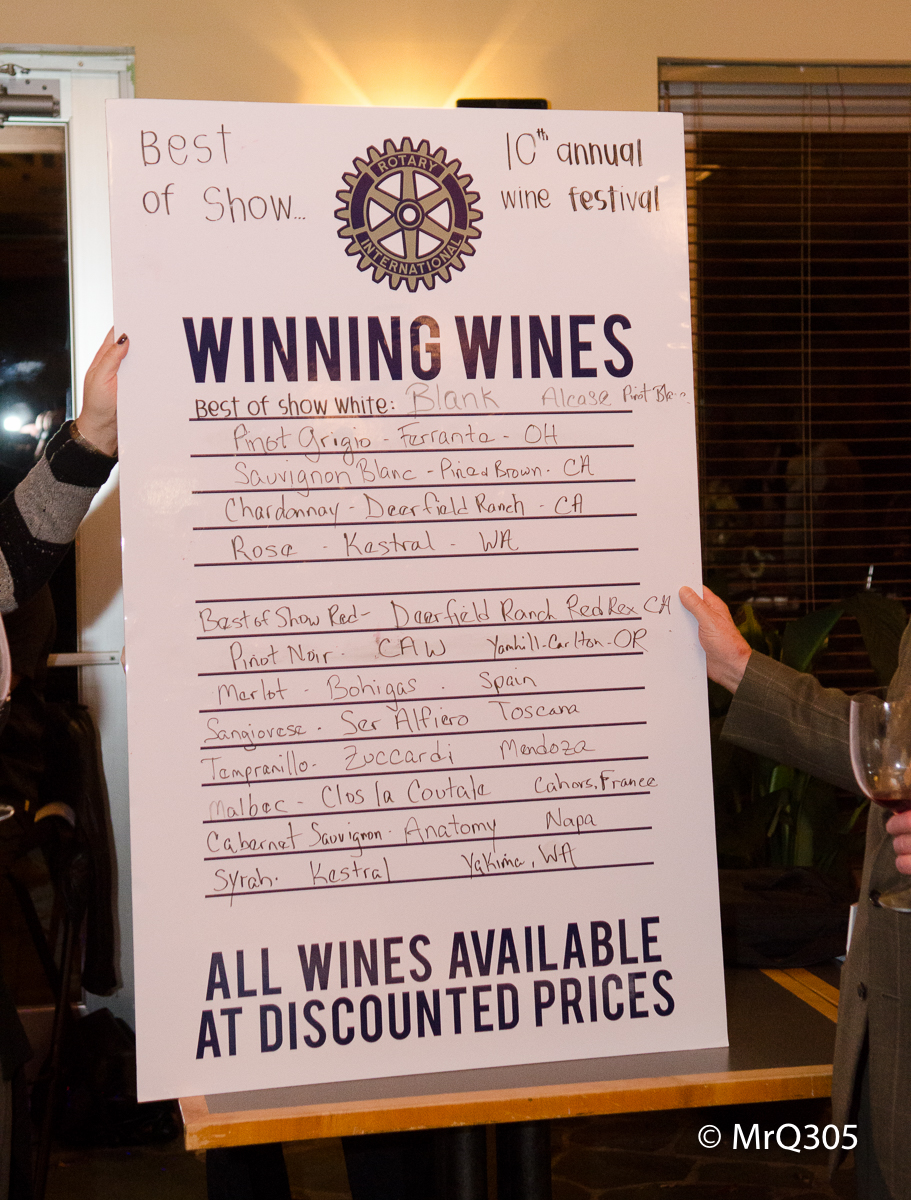 Best of Show...
10th annual wine festival
ROTARY INTERNATIONAL
WINNING WINES
Best of show white: Blank Alcase Pinot
Pinot Grigio - Ferrante - OH
Sauvignon Blanc - Pine & Brown - CA
Chardonnay - Deerfield Ranch - CA
Rose - Kestral - WA
Best of Show Red - Deerfield Ranch Red Rex CA
Pinot Noir - CAW Yamhill-Carlton - OR
Merlot - Bohigas - Spain
Sangiovese - Ser Alfiero Toscana
Tempranillo - Zuccardi Mendoza
Malbec - Clos la Coutale Cahors, France
Cabernet Sauvignon - Anatomy Napa
Syrah - Kestral Yakima, WA
ALL WINES AVAILABLE
AT DISCOUNTED PRICES
© MrQ305